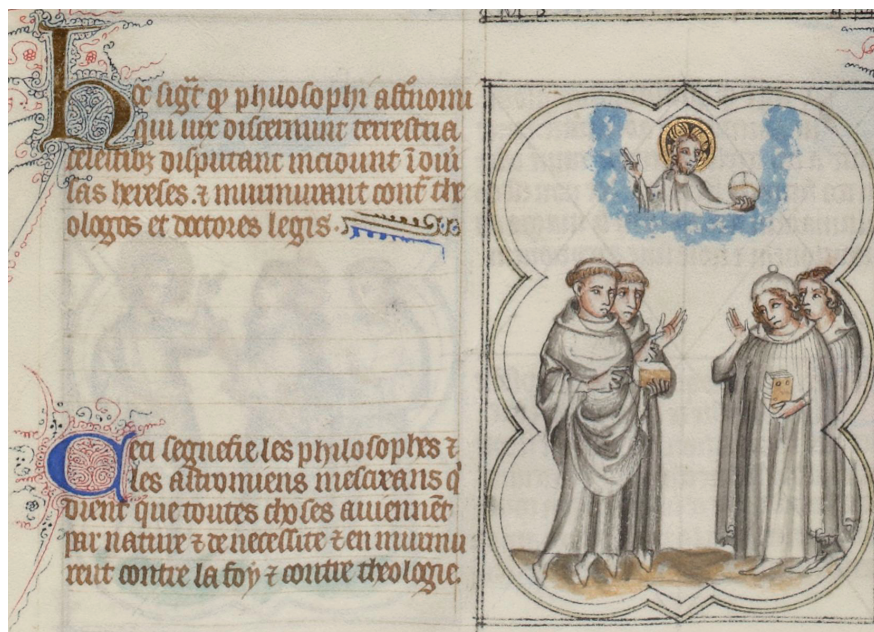 hoc sigt̄ qꝙ philosophi astronomi
qui iux discernunt terrestria
celestibꝫ disputant incidunt ī diu̇
sas hereses. ⁊ murmurant cont̄ the
ologos et doctores legis.
Ceci segnefie les philosophes ⁊
les astromiens mescreans q̇
dient que toutes choses auiennēt
par nature ⁊ de necessite ⁊ en murmu
rent contre la foy ⁊ contre theologie.